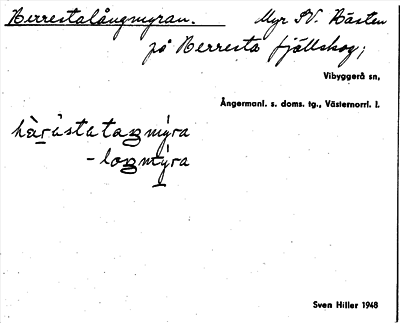 Herrestalångmyran. Myr SV. Hästen
på Herresta fjällskog;
Vibyggerå sn,
Ångermanl. s. doms. tg., Västernorrl. l.
-loŋmýra
Sven Hiller 1948